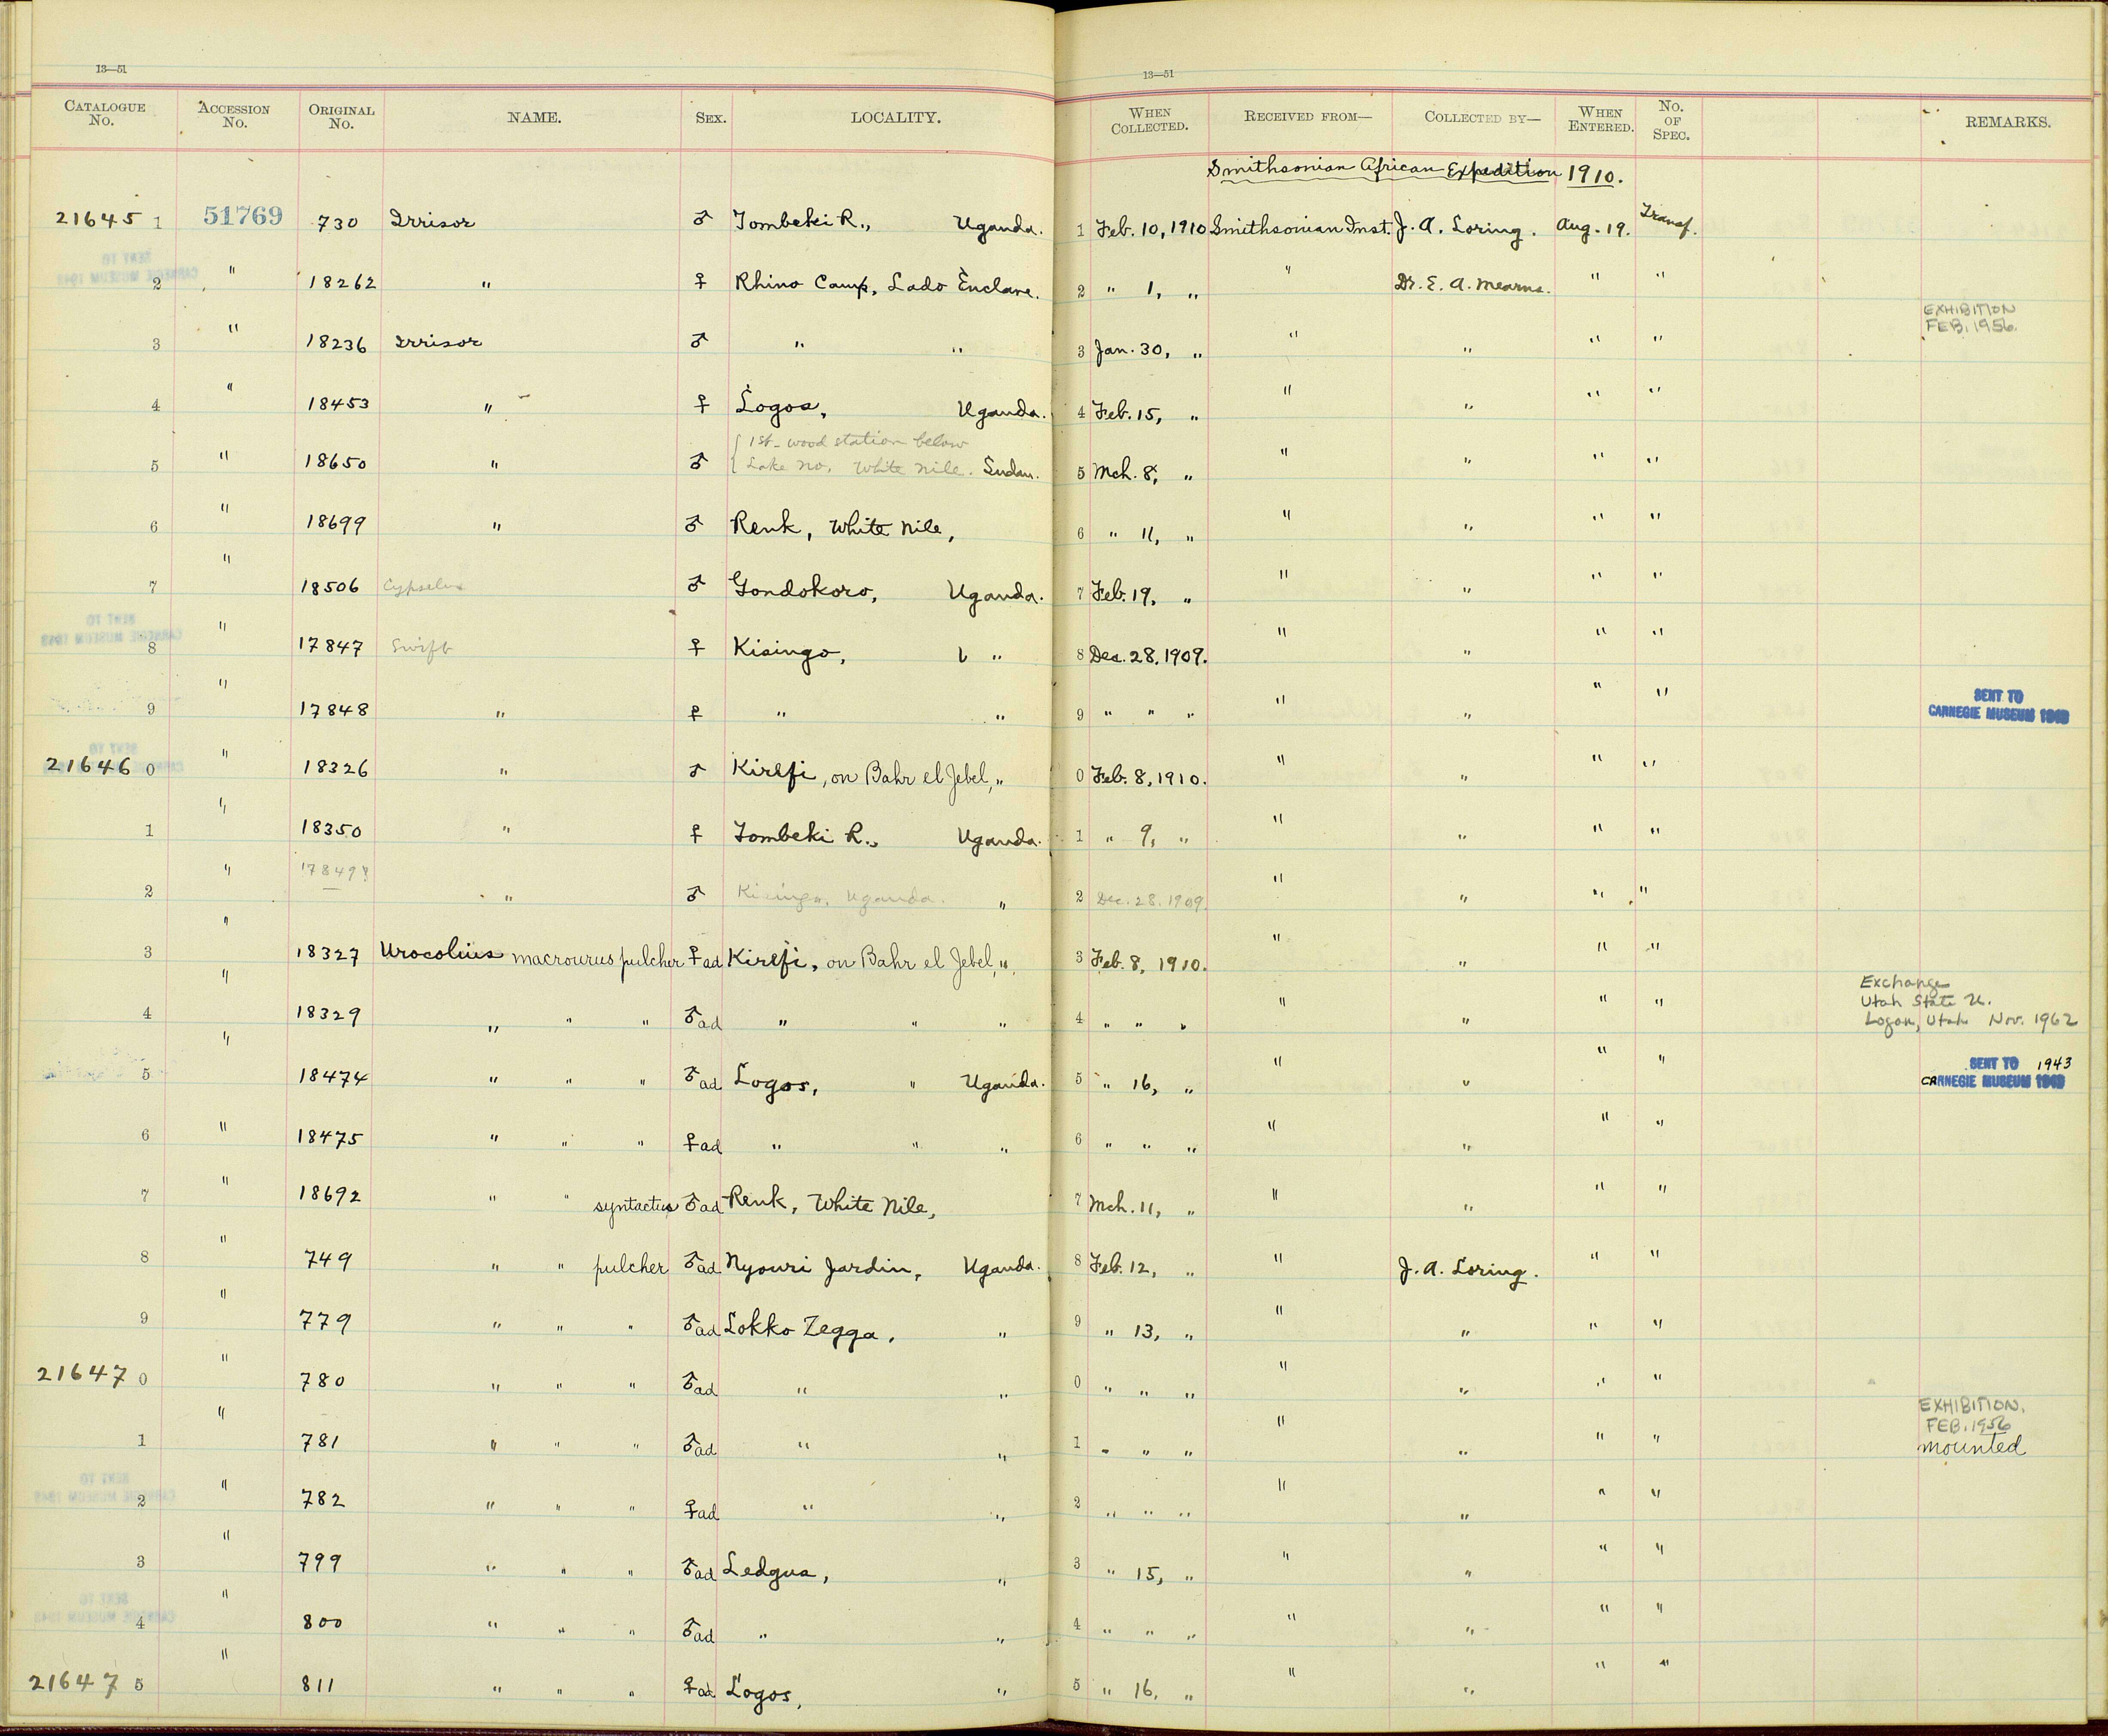 13—51
13—51
CATALOGUE No. ACCESSION No. ORIGINAL No. NAME. SEX. LOCALITY. WHEN COLLECTED. RECEIVED FROM— COLLECTED BY— WHEN ENTERED. No. OF SPEC. REMARKS.
Smithsonian African Expedition 1910.
21645 1 51769 730 Irrisor ♂ Tombeki R., Uganda. 1 Feb. 10, 1910 Smithsonian Inst. J. A. Loring. Aug. 19. Transf.
2 " 18262 " ♀ Rhino Camp, Lado Enclave. 2 " 1, " " Dr. E. A. Mearns. " "
EXHIBITION
FEB. 1956.
3 " 18236 Irrisor ♂ " " 3 Jan. 30, " " " " "
4 " 18453 " ♀ Logos, Uganda. 4 Feb. 15, " " " " "
5 " 18650 " ♂ { 1st wood station below
Lake No, White Nile. Sudan. 5 Mch. 8, " " " " "
6 " 18699 " ♂ Renk, White Nile, 6 " 11, " " " " "
7 " 18506 Cypselus ♂ Gondokoro, Uganda. 7 Feb. 19, " " " " "
8 " 17847 Swift ♀ Kisingo, " 8 Dec. 28. 1909. " " " "
9 " 17848 " ♀ " " 9 " " " " " " " SENT TO
CARNEGIE MUSEUM 1943
21646 0 " 18326 " ♂ Kirefi, on Bahr el Jebel, " 0 Feb. 8, 1910. " " " "
1 " 18350 " ♀ Tombeki R., Uganda. 1 " 9, " " " " "
2 " 17849? " ♂ Kisingo, Uganda. " 2 Dec. 28. 1909. " " " "
3 " 18327 Urocolius macrourus pulcher ♀ad Kirefi, on Bahr el Jebel, " 3 Feb. 8, 1910. " " " "
Exchange
Utah State U.
Logan, Utah Nov. 1962
4 " 18329 " " " ♂ad " " " 4 " " " " " " "
5 " 18474 " " " ♂ad Logos, " Uganda. 5 " 16, " " " " " SENT TO 1943
CARNEGIE MUSEUM 1943
6 " 18475 " " " ♀ad " " " 6 " " " " " " "
7 " 18692 " " syntactus ♂ad Renk, White Nile, 7 Mch. 11, " " " " "
8 " 749 " " pulcher ♂ad Nyouri Jardin, Uganda. 8 Feb. 12, " " J. A. Loring. " "
9 " 779 " " " ♂ad Lokko Zegga, " 9 " 13, " " " " "
21647 0 " 780 " " " ♂ad " " 0 " " " " " " "
EXHIBITION.
FEB. 1956
1 " 781 " " " ♂ad " " 1 " " " " " " " mounted
2 " 782 " " " ♀ad " " 2 " " " " " " "
3 " 799 " " " ♂ad Ledgua, " 3 " 15, " " " " "
4 " 800 " " " ♂ad " " 4 " " " " " " "
21647 5 " 811 " " " ♀ad Logos, " 5 " 16, " " " " "